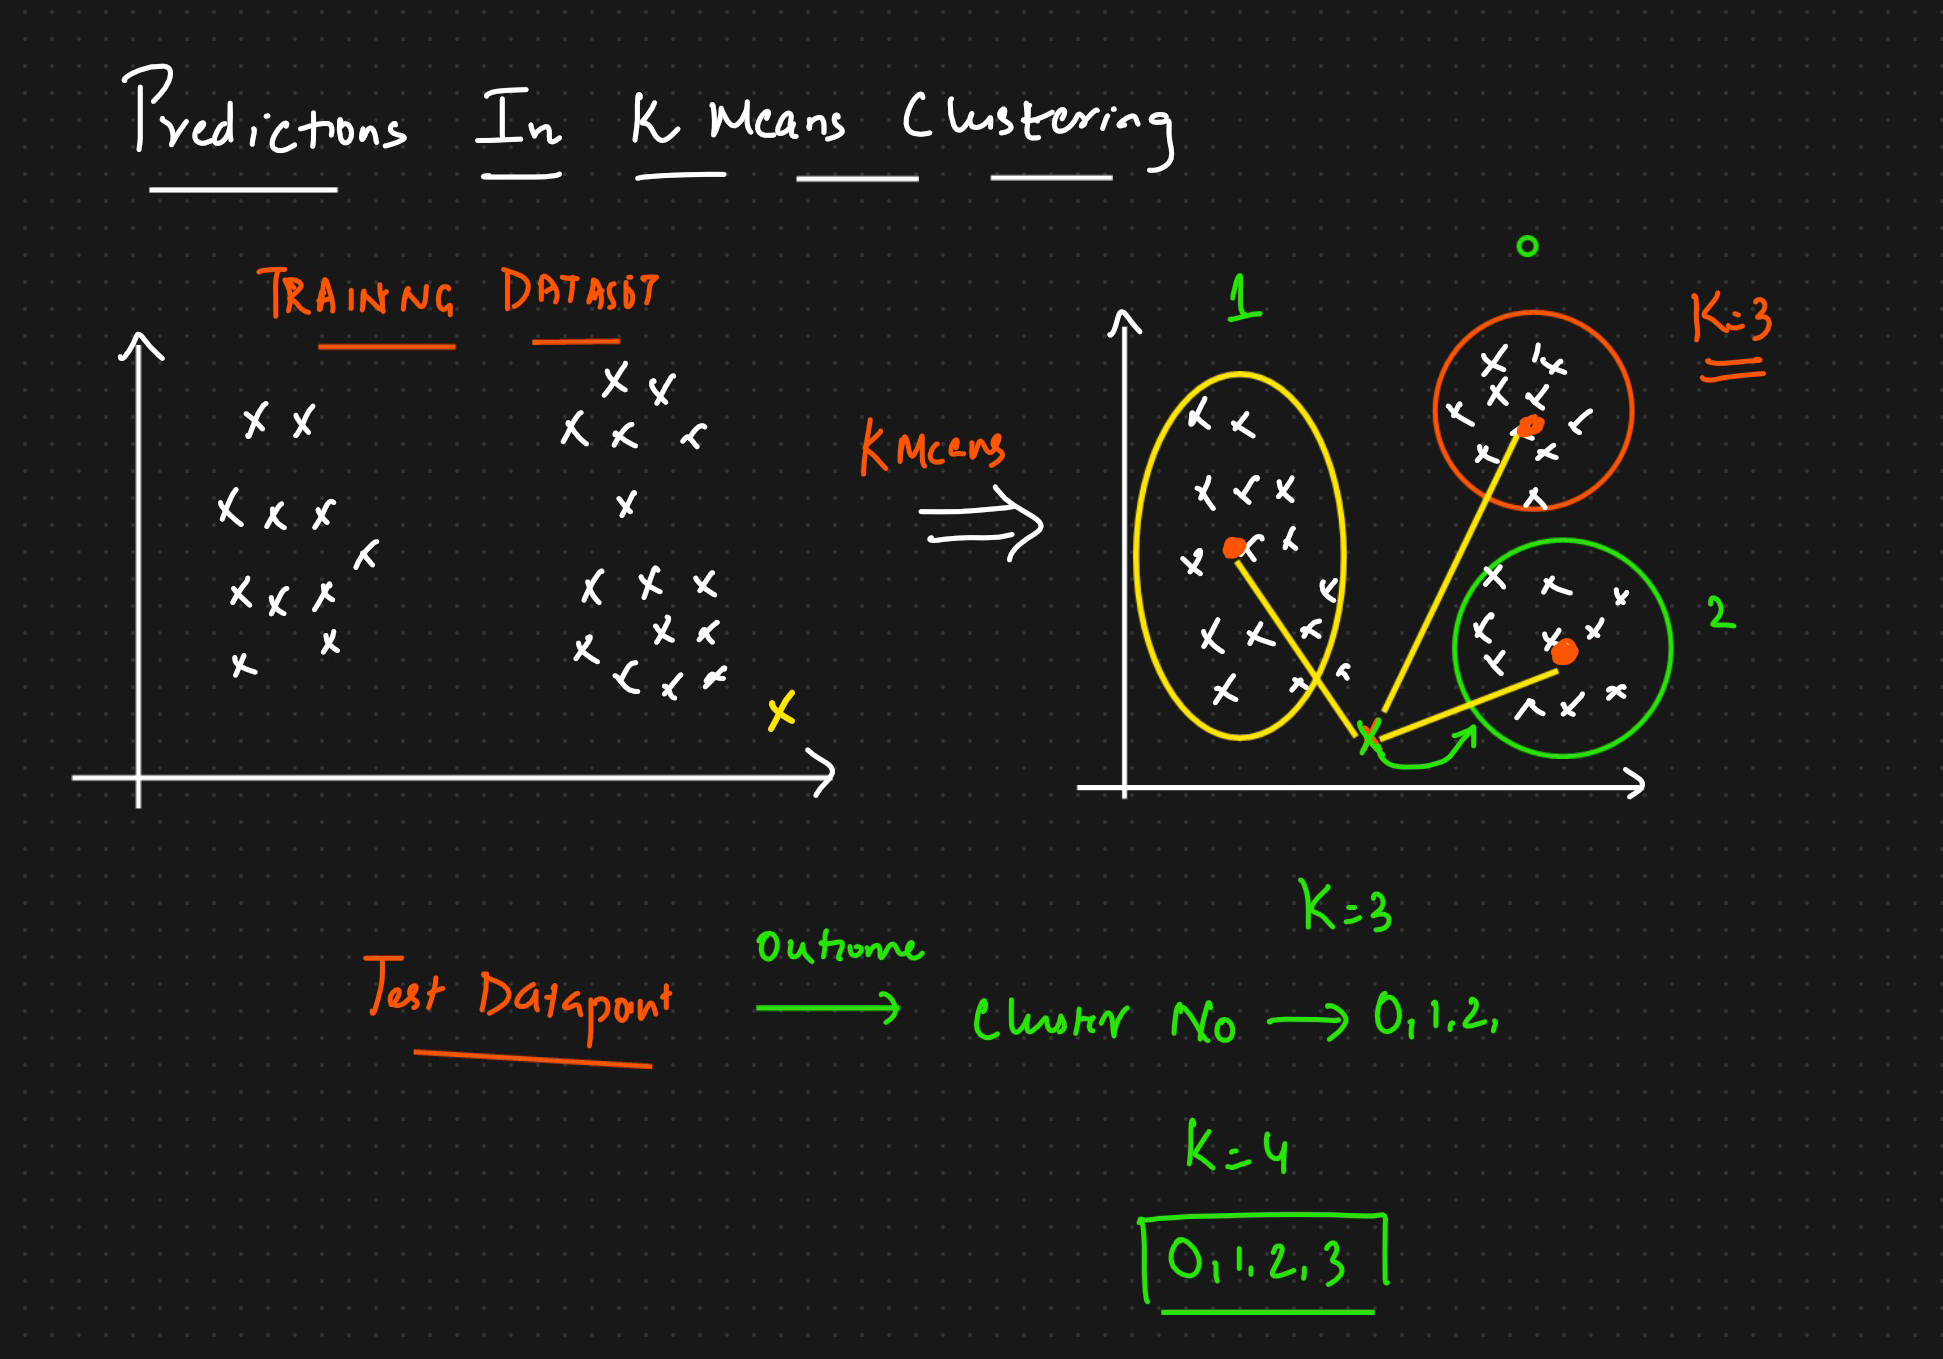 Predictions In K Means Clustering
TRAINNG DATASET
K Means
1
0
K=3
2
K=3
Test Datapoint
Outcome
Cluster No → 0, 1, 2,
K=4
0, 1, 2, 3